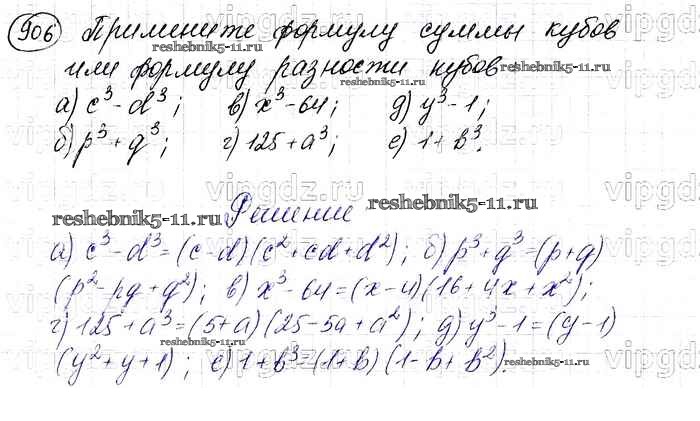 906 Примените формулу суммы кубов
или формулу разности кубов:
а) c³-d³; в) x³-64; д) y³-1;
б) p³+q³; г) 125+a³; е) 1+b³.
Решение
а) c³-d³=(c-d)(c²+cd+d²); б) p³+q³=(p+q)
(p²-pq+q²); в) x³-64=(x-4)(16+4x+x²);
г) 125+a³=(5+a)(25-5a+a²); д) y³-1=(y-1)
(y²+y+1); е) 1+b³=(1+b)(1-b+b²).
reshebnik5-11.ru
reshebnik5-11.ru
reshebnik5-11.ru
reshebnik5-11.ru
reshebnik5-11.ru
reshebnik5-11.ru
reshebnik5-11.ru
reshebnik5-11.ru
vipgdz.ru
vipgdz.ru
vipgdz.ru